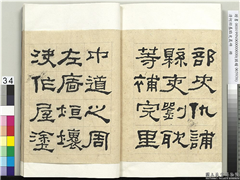 部史仇誧
縣吏劉耽
等補完里
中道之周
左廧垣壞
決作屋塗
34